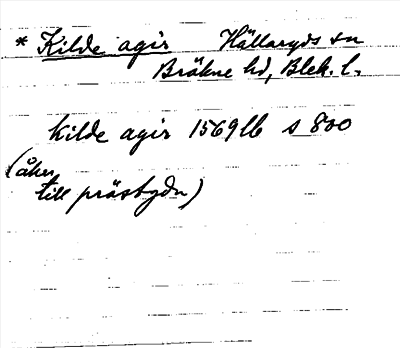 * Kilde agir Hällaryds sn
Bräkne hd, Blek. l.
kilde agir 1569 lb s 800
(åker
till prästgdn)